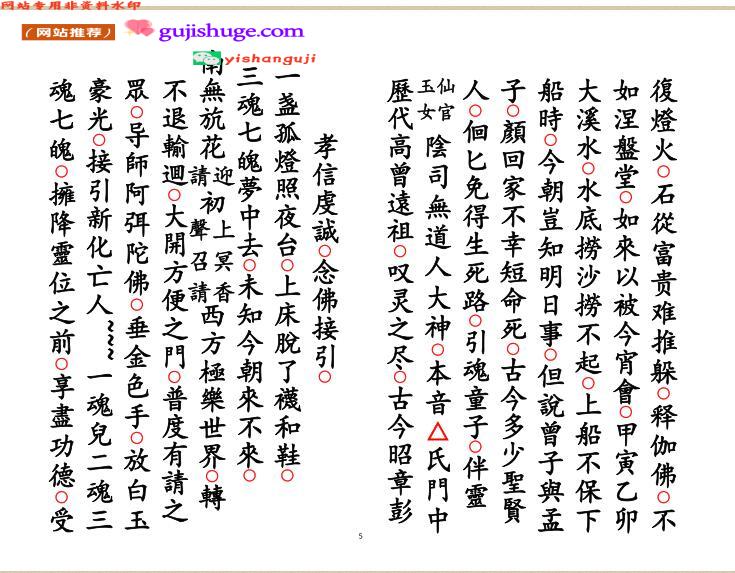 网站专用非资料水印
（网站推荐） gujishuge.com
yishanguji
復燈火○石從富贵难推躲○释伽佛○不
如涅盤堂○如來以被今宵會○甲寅乙卯
大溪水○水底撈沙撈不起○上船不保下
船時○今朝豈知明日事○但說曾子與孟
子○顏回家不幸短命死○古今多少聖賢
人○佪匕免得生死路○引魂童子○伴靈
仙官
玉女
陰司無道人大神○本音△氏門中
歷代高曾遠祖○叹灵之尽○古今昭章彭
孝信虔誠○念佛接引○
一盏孤燈照夜台○上床脫了襪和鞋○
三魂七魄夢中去○未知今朝來不來○
南無旂花
迎請
初
上聲
冥召
香請
西方極樂世界○轉
不退輸迴○大開方便之門○普度有請之
眾○导師阿弭陀佛○垂金色手○放白玉
豪光○接引新化亡人~~~一魂兒二魂三
魂七魄○擁降靈位之前○享盡功德○受
5